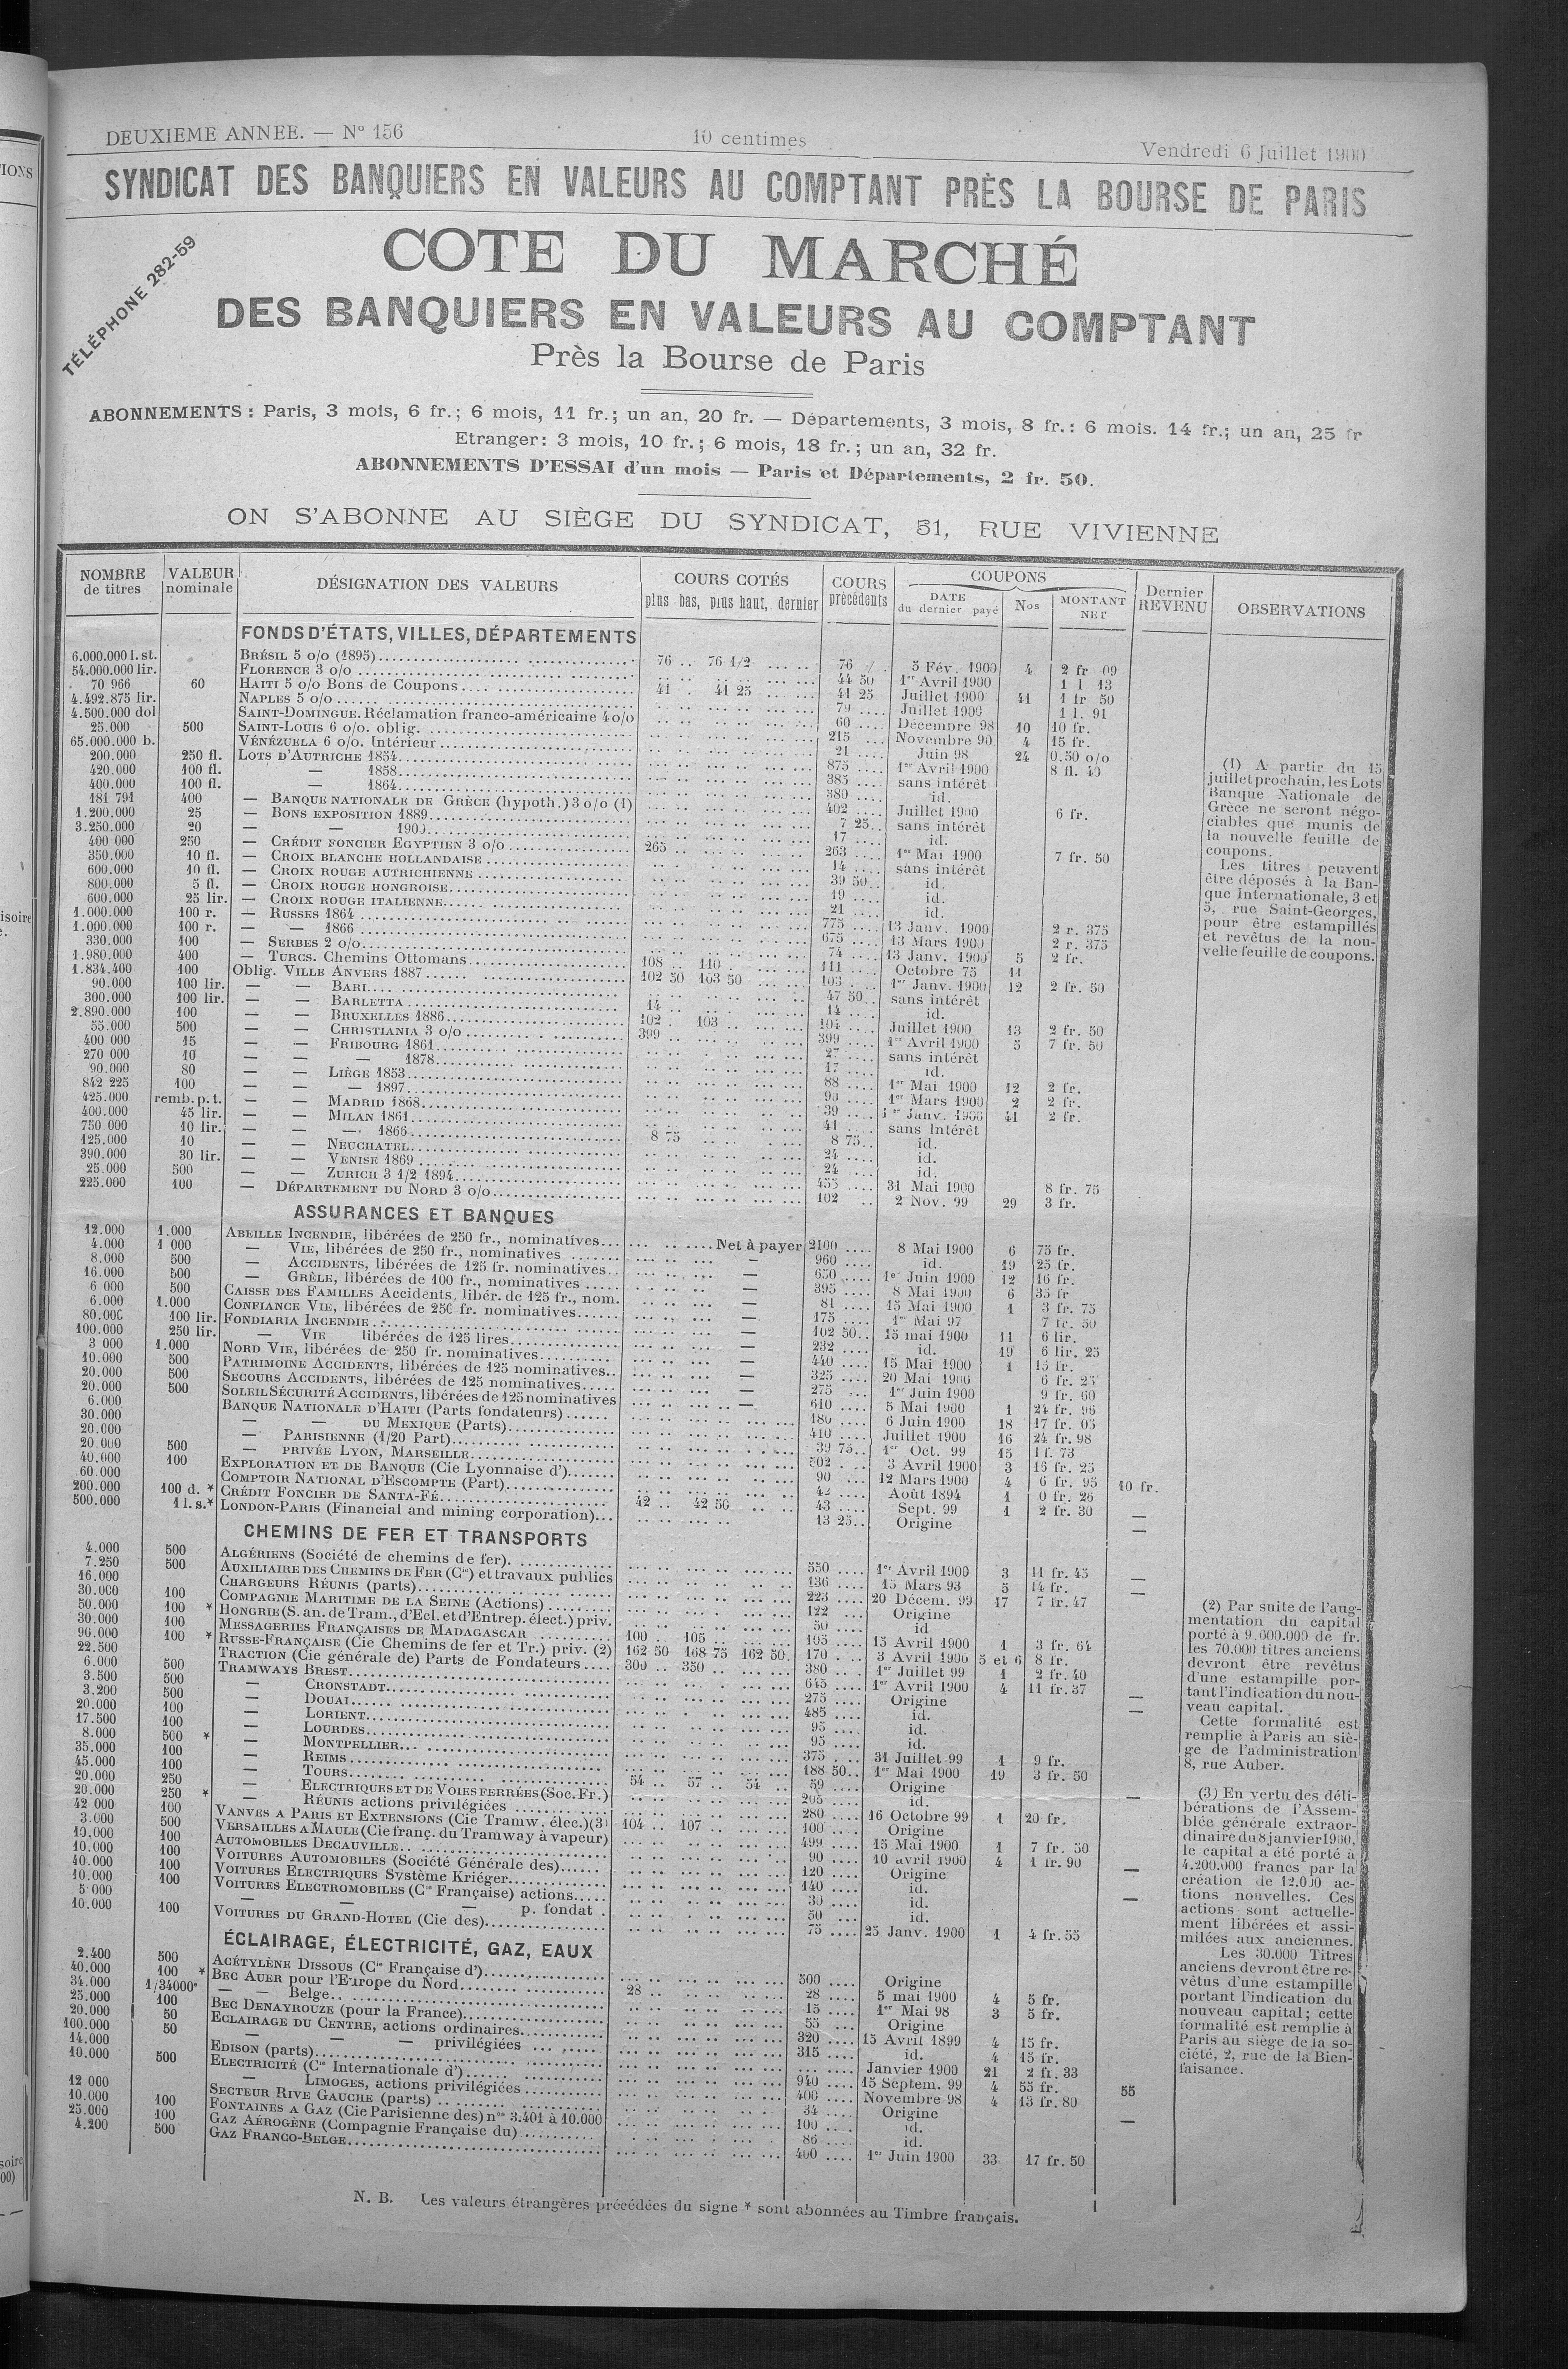 DEUXIEME ANNEE. — Nº 156
10 centimes
Vendredi 6 Juillet 1900
SYNDICAT DES BANQUIERS EN VALEURS AU COMPTANT PRÈS LA BOURSE DE PARIS
TÉLÉPHONE 282-59
COTE DU MARCHÉ
DES BANQUIERS EN VALEURS AU COMPTANT
Près la Bourse de Paris
ABONNEMENTS : Paris, 3 mois, 6 fr.; 6 mois, 11 fr.; un an, 20 fr. — Départements, 3 mois, 8 fr.: 6 mois. 14 fr.; un an, 25 fr
Etranger: 3 mois, 10 fr.; 6 mois, 18 fr.; un an, 32 fr.
ABONNEMENTS D'ESSAI d'un mois — Paris et Départements, 2 fr. 50.
ON S'ABONNE AU SIÈGE DU SYNDICAT, 31, RUE VIVIENNE
NOMBRE de titres | VALEUR nominale | DÉSIGNATION DES VALEURS | COURS COTÉS plus bas, plus haut, dernier | COURS précédents | COUPONS DATE du dernier payé | Nos | MONTANT NET | Dernier REVENU | OBSERVATIONS
FONDS D'ÉTATS, VILLES, DÉPARTEMENTS
6.000.000 l. st. BRÉSIL 5 o/o (1895) 76 .. 76 1/2 76 5 Fév. 1900 4 2 fr 09
54.000.000 lir. FLORENCE 3 o/o 44 50 1er Avril 1900 1 l. 13
70 966 60 HAITI 5 o/o Bons de Coupons 41 . 41 25 41 25 Juillet 1900 41 1 fr 50
4.492.875 lir. NAPLES 5 o/o 79 Juillet 1900 1 l. 91
4.500.000 dol SAINT-DOMINGUE. Réclamation franco-américaine 4 o/o 60 Décembre 98 10 10 fr.
25.000 500 SAINT-LOUIS 6 o/o. oblig. 215 Novembre 90 4 15 fr.
65.000.000 b. VÉNÉZUELA 6 o/o. Intérieur 21 Juin 98 24 0.50 o/o
200.000 250 fl. LOTS D'AUTRICHE 1854 875 1er Avril 1900 8 fl. 40
420.000 100 fl. — 1858 385 sans intérêt
400.000 100 fl. — 1864 380 id.
181 791 400 — BANQUE NATIONALE DE GRÈCE (hypoth.) 3 o/o (1) 402 Juillet 1900 6 fr.
1.200.000 25 — BONS EXPOSITION 1889 7 25 sans intérêt
3.250.000 20 — — 1900 17 id.
400 000 250 — CRÉDIT FONCIER EGYPTIEN 3 o/o 265 263 1er Mai 1900 7 fr. 50
350.000 10 fl. — CROIX BLANCHE HOLLANDAISE 14 sans intérêt
600.000 10 fl. — CROIX ROUGE AUTRICHIENNE 39 50 id.
800.000 5 fl. — CROIX ROUGE HONGROISE 19 id.
600.000 25 lir. — CROIX ROUGE ITALIENNE 21 id.
1.000.000 100 r. — RUSSES 1864 775 13 Janv. 1900 2 r. 375
1.000.000 100 r. — — 1866 675 13 Mars 1900 2 r. 375
330.000 100 — SERBES 2 o/o 74 13 Janv. 1900 5 2 fr.
1.980.000 400 — TURCS. Chemins Ottomans 108 .. 110 111 Octobre 75 11
1.834.400 100 Oblig. VILLE ANVERS 1887 102 50 103 50 103 1er Janv. 1900 12 2 fr. 50
90.000 100 lir. — — BARI 47 50 sans intérêt
300.000 100 lir. — — BARLETTA 14 14 id.
2.890.000 100 — — BRUXELLES 1886 102 . 103 104 Juillet 1900 13 2 fr. 50
55.000 500 — — CHRISTIANIA 3 o/o 399 399 1er Avril 1900 5 7 fr. 50
400 000 15 — — FRIBOURG 1861 27 sans intérêt
270 000 10 — — — 1878 17 id.
90.000 80 — — LIÈGE 1853 88 1er Mai 1900 12 2 fr.
842 225 100 — — — 1897 90 1er Mars 1900 2 2 fr.
425.000 remb. p. t. — — MADRID 1868 39 1er Janv. 1900 41 2 fr.
400.000 45 lir. — — MILAN 1861 41 sans Intérêt
750 000 10 lir. — — — 1866 8 75 8 75 id.
125.000 10 — — NEUCHATEL 24 id.
390.000 30 lir. — — VENISE 1869 24 id.
25.000 500 — — ZURICH 3 1/2 1894 455 31 Mai 1900 8 fr. 75
225.000 100 — DÉPARTEMENT DU NORD 3 o/o 102 2 Nov. 99 29 3 fr.
ASSURANCES ET BANQUES
12.000 1.000 ABEILLE INCENDIE, libérées de 250 fr., nominatives Net à payer 2100 8 Mai 1900 6 75 fr.
4.000 1 000 — VIE, libérées de 250 fr., nominatives — 960 id. 19 25 fr.
8.000 500 — ACCIDENTS, libérées de 125 fr. nominatives — 650 1er Juin 1900 12 16 fr.
16.000 500 — GRÊLE, libérées de 100 fr., nominatives — 395 8 Mai 1900 6 35 fr
6 000 500 CAISSE DES FAMILLES Accidents, libér. de 125 fr., nom. — 81 15 Mai 1900 1 3 fr. 75
6.000 1.000 CONFIANCE VIE, libérées de 250 fr. nominatives — 175 1er Mai 97 7 fr. 50
80.000 100 lir. FONDIARIA INCENDIE — 102 50 15 mai 1900 11 6 lir.
100.000 250 lir. — VIE libérées de 125 lires — 232 id. 19 6 lir. 25
3 000 1.000 NORD VIE, libérées de 250 fr. nominatives — 440 15 Mai 1900 1 15 fr.
10.000 500 PATRIMOINE ACCIDENTS, libérées de 125 nominatives — 325 20 Mai 1900 6 fr. 25
20.000 500 SECOURS ACCIDENTS, libérées de 125 nominatives — 275 1er Juin 1900 9 fr. 60
20.000 500 SOLEIL SÉCURITÉ ACCIDENTS, libérées de 125 nominatives — 610 5 Mai 1900 1 24 fr. 96
6.000 BANQUE NATIONALE D'HAITI (Parts fondateurs) 180 6 Juin 1900 18 17 fr. 05
30.000 — — DU MEXIQUE (Parts) 410 Juillet 1900 16 24 fr. 98
20.000 — PARISIENNE (1/20 Part) 39 75 1er Oct. 99 15 1 f. 73
20.000 500 — PRIVÉE LYON, MARSEILLE 502 3 Avril 1900 3 16 fr. 25
40.000 100 EXPLORATION ET DE BANQUE (Cie Lyonnaise d') 90 12 Mars 1900 4 6 fr. 95 10 fr.
60.000 COMPTOIR NATIONAL D'ESCOMPTE (Part) 42 Août 1894 1 0 fr. 26
200.000 100 d. * CRÉDIT FONCIER DE SANTA-FÉ 42 .. 42 50 43 Sept. 99 1 2 fr. 30 —
500.000 1 l. s. * LONDON-PARIS (Financial and mining corporation) 13 25 Origine —
CHEMINS DE FER ET TRANSPORTS
4.000 500 ALGÉRIENS (Société de chemins de fer). 550 1er Avril 1900 3 11 fr. 45 —
7.250 500 AUXILIAIRE DES CHEMINS DE FER (Cie) et travaux publics 136 15 Mars 93 5 14 fr. —
16.000 CHARGEURS RÉUNIS (parts) 223 20 Décem. 99 17 7 fr. 47
30.000 100 COMPAGNIE MARITIME DE LA SEINE (Actions) 122 Origine
50.000 100 * HONGRIE (S. an. de Tram., d'Ecl. et d'Entrep. élect.) priv. 50 id
30.000 100 MESSAGERIES FRANÇAISES DE MADAGASCAR 100 .. 105 105 15 Avril 1900 1 3 fr. 64
90.000 100 * RUSSE-FRANÇAISE (Cie Chemins de fer et Tr.) priv. (2) 162 50 168 75 162 50 170 3 Avril 1900 5 et 6 8 fr.
22.500 TRACTION (Cie générale de) Parts de Fondateurs 300 .. 350 380 1er Juillet 99 1 2 fr. 40
6.000 500 TRAMWAYS BREST 645 1er Avril 1900 4 11 fr. 37
3.500 500 — CRONSTADT 275 Origine —
3.200 500 — DOUAI 485 id. —
20.000 100 — LORIENT 95 id.
17.500 100 — LOURDES 95 id.
8.000 500 * — MONTPELLIER 375 31 Juillet 99 1 9 fr.
35.000 100 — REIMS 188 50 1er Mai 1900 19 3 fr. 50
45.000 100 — TOURS 54 .. 57 .. 54 59 Origine
20.000 250 — ELECTRIQUES ET DE VOIES FERRÉES (Soc. Fr.) 205 id. —
20.000 250 * — RÉUNIS actions privilégiées 280 16 Octobre 99 1 20 fr.
42 000 100 VANVES A PARIS ET EXTENSIONS (Cie Tramw. élec.) (3) 104 .. 107 100 Origine
3.000 500 VERSAILLES A MAULE (Cie franç. du Tramway à vapeur) 499 15 Mai 1900 1 7 fr. 50
10.000 100 AUTOMOBILES DECAUVILLE 90 10 avril 1900 4 1 fr. 90
10.000 100 VOITURES AUTOMOBILES (Société Générale des) 120 Origine —
40.000 100 VOITURES ELECTRIQUES Système Kriéger 140 id.
10.000 100 VOITURES ELECTROMOBILES (Cie Française) actions 30 id. —
5 000 — — — p. fondat. 50 id.
10.000 100 VOITURES DU GRAND-HOTEL (Cie des) 75 25 Janv. 1900 1 4 fr. 55
ÉCLAIRAGE, ÉLECTRICITÉ, GAZ, EAUX
2.400 500 ACÉTYLÈNE DISSOUS (Cie Française d') 500 Origine
40.000 100 * BEC AUER pour l'Europe du Nord 28 28 5 mai 1900 4 5 fr.
34.000 1/34000e — — Belge 15 1er Mai 98 3 5 fr.
25.000 100 BEC DENAYROUZE (pour la France) 55 Origine
20.000 50 ECLAIRAGE DU CENTRE, actions ordinaires 320 15 Avril 1899 4 15 fr.
100.000 50 — — — privilégiées 315 id. 4 15 fr.
14.000 EDISON (parts) Janvier 1900 21 2 fr. 33
10.000 500 ELECTRICITÉ (Cie Internationale d') 940 15 Septem. 99 4 55 fr. 55
— LIMOGES, actions privilégiées 400 Novembre 98 4 13 fr. 80
12 000 SECTEUR RIVE GAUCHE (parts) 34 Origine —
10.000 100 FONTAINES A GAZ (Cie Parisienne des) nos 3.401 à 10.000 100 id.
25.000 100 GAZ AÉROGÈNE (Compagnie Française du) 86 id.
4.200 500 GAZ FRANCO-BELGE 400 1er Juin 1900 33 17 fr. 50
(1) A partir du 15
juillet prochain, les Lots
Banque Nationale de
Grèce ne seront négo-
ciables que munis de
la nouvelle feuille de
coupons.
Les titres peuvent
être déposés à la Ban-
que Internationale, 3 et
5, rue Saint-Georges,
pour être estampillés
et revêtus de la nou-
velle feuille de coupons.
(2) Par suite de l'aug-
mentation du capital
porté à 9.000.000 de fr.
les 70.000 titres anciens
devront être revêtus
d'une estampille por-
tant l'indication du nou-
veau capital.
Cette formalité est
remplie à Paris au siè-
ge de l'administration
8, rue Auber.
(3) En vertu des déli-
bérations de l'Assem-
blée générale extraor-
dinaire du 8 janvier 1900,
le capital a été porté à
4.200.000 francs par la
création de 12.000 ac-
tions nouvelles. Ces
actions sont actuelle-
ment libérées et assi-
milées aux anciennes.
Les 30.000 Titres
anciens devront être re-
vêtus d'une estampille
portant l'indication du
nouveau capital; cette
formalité est remplie à
Paris au siège de la so-
ciété, 2, rue de la Bien-
faisance.
N. B. Les valeurs étrangères précédées du signe * sont abonnées au Timbre français.